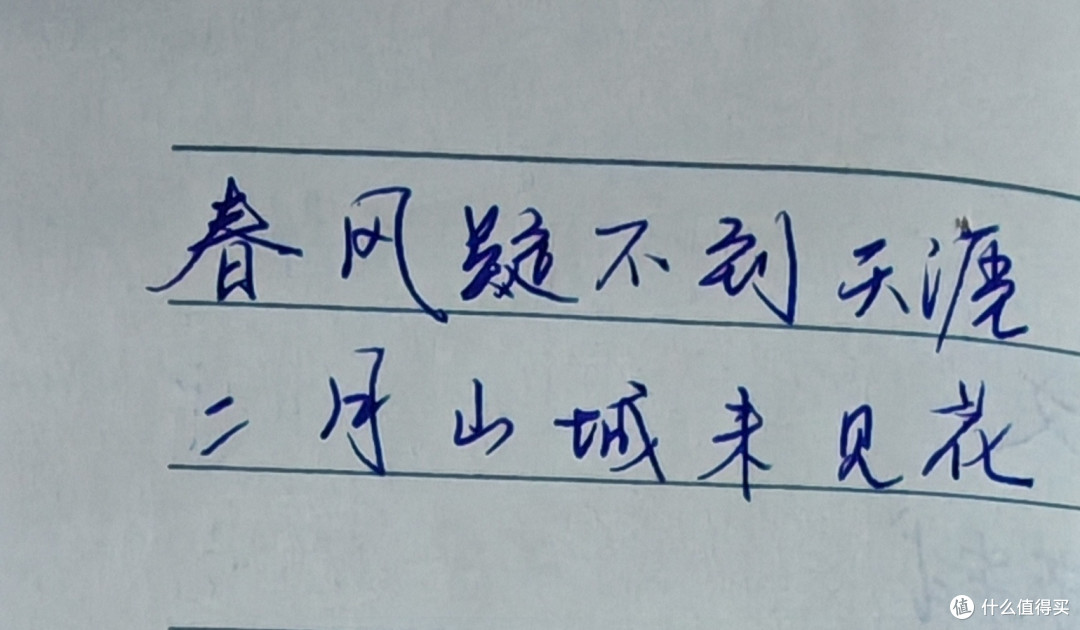 春风疑不到天涯
二月山城未见花
值 什么值得买